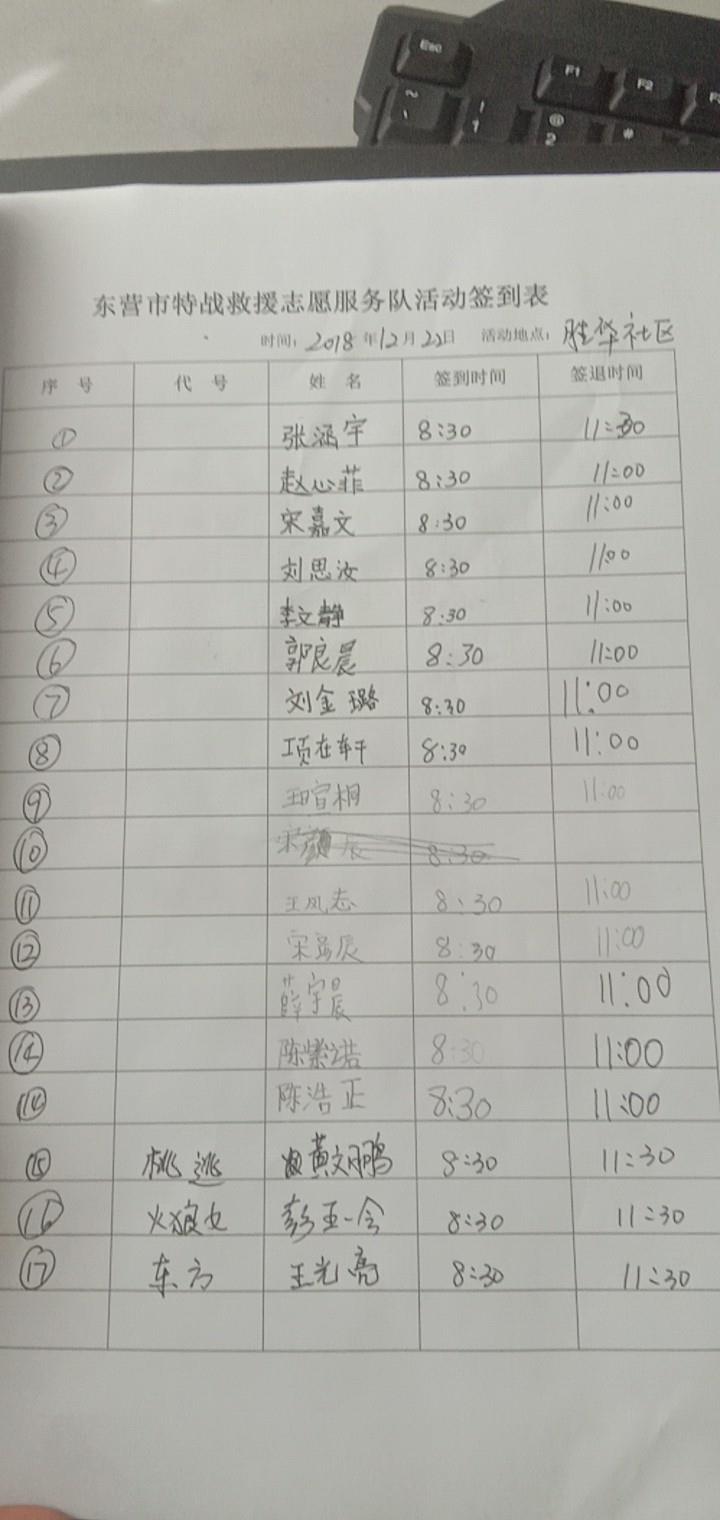 Esc F1 F2 F3
~ ! 1 @ 2 #
东营市特战救援志愿服务队活动签到表
时间：2018年12月22日 活动地点：胜华社区
序 号 代 号 姓 名 签到时间 签退时间
① 张涵宇 8:30 11:30
② 赵心菲 8:30 11:00
③ 宋嘉文 8:30 11:00
④ 刘思汝 8:30 11:00
⑤ 李文静 8:30 11:00
⑥ 郭良晨 8:30 11:00
⑦ 刘金璐 8:30 11:00
⑧ 项在轩 8:30 11:00
⑨ 王宣桐 8:30 11:00
⑩ 8:30
⑪ 王凤志 8:30 11:00
⑫ 8:30 11:00
⑬ 薛宇晨 8:30 11:00
⑭ 陈紫诺 8:30 11:00
⑭ 陈浩正 8:30 11:00
⑮ 桃逃 黄文鹏 8:30 11:30
⑯ 火狼女 彭亚会 8:30 11:30
⑰ 东方 王光亮 8:30 11:30